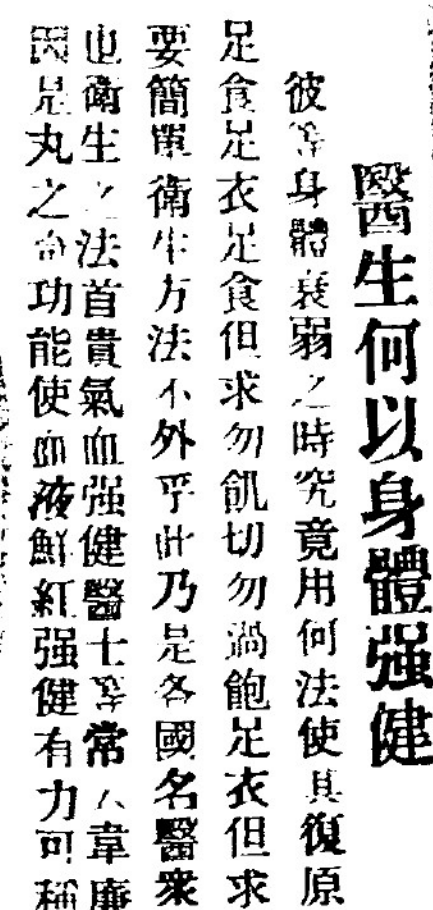 醫生何以身體强健
彼等身體衰弱之時究竟用何法使其復原
足食足衣足食但求勿飢切勿過飽足衣但求
要簡單衛生方法不外乎此乃是各國名醫衆
也衛生之法首貴氣血强健醫士常人韋廉
因是丸之功能使血液鮮紅强健有力可稱